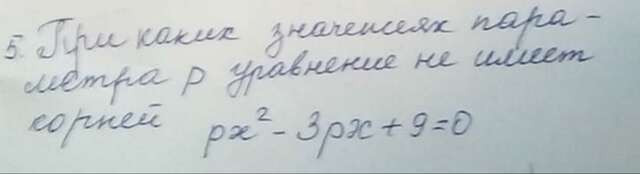 5. При каких значениях пара-
метра р уравнение не имеет
корней px² - 3px + 9 = 0